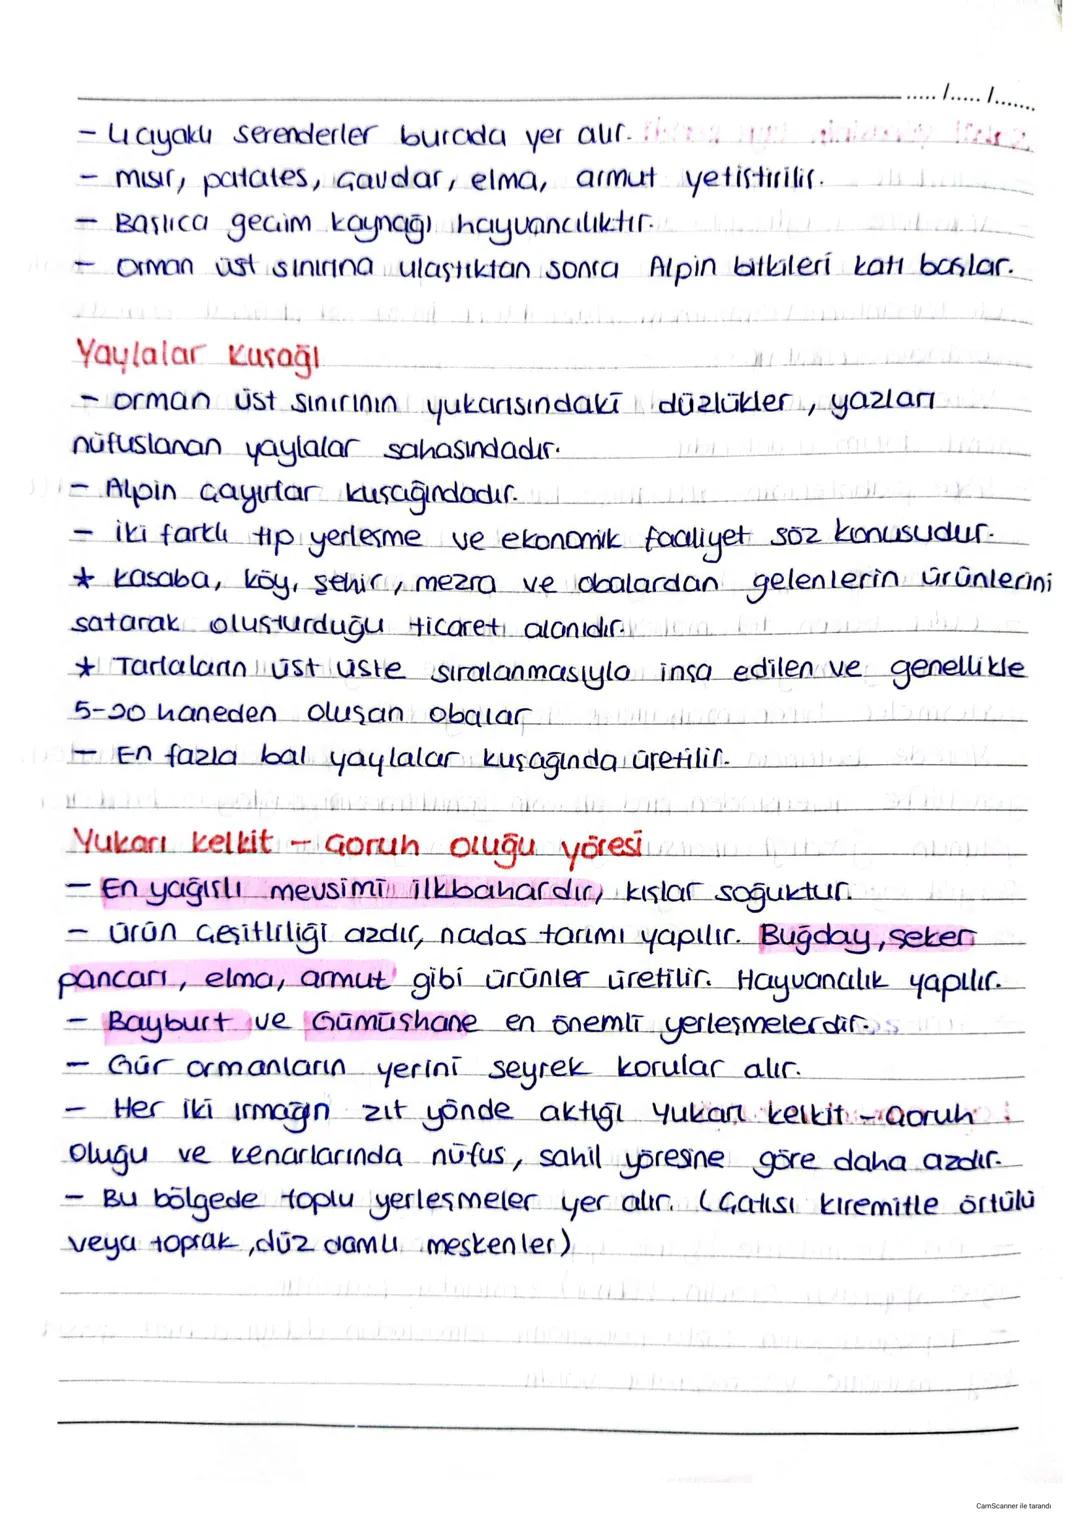 ..... /..... /.......
- 4 ayaklı serenderler burada yer alır.
- mısır, patates, çavdar, elma, armut yetiştirilir.
- Başlıca geçim kaynağı hayvancılıktır.
- Orman üst sınırına ulaştıktan sonra Alpin bitkileri katı başlar.
Yaylalar Kuşağı
- orman üst sınırının yukarısındaki düzlükler, yazları
nüfuslanan yaylalar sahasındadır.
- Alpin çayırlar kuşağındadır.
- iki farklı tip yerleşme ve ekonomik faaliyet söz konusudur.
* kasaba, köy, şehir, mezra ve obalardan gelenlerin ürünlerini
satarak oluşturduğu ticaret alanıdır.
* Tarlaların üst üste sıralanmasıyla inşa edilen ve genellikle
5-20 haneden oluşan obalar
- En fazla bal yaylalar kuşağında üretilir.
Yukarı Kelkit - Çoruh oluğu yöresi
- En yağışlı mevsimi ilkbahardır, kışlar soğuktur.
- ürün çeşitliliği azdır, nadas tarımı yapılır. Buğday, şeker
pancarı, elma, armut gibi ürünler üretilir. Hayvancılık yapılır.
- Bayburt ve Gümüşhane en önemli yerleşmelerdir.
- Gür ormanların yerini seyrek korular alır.
- Her iki ırmağın zıt yönde aktığı Yukarı kelkit - Çoruh
Oluğu ve kenarlarında nüfus, sahil yöresine göre daha azdır.
- Bu bölgede toplu yerleşmeler yer alır. (Çatısı kiremitle örtülü
veya toprak, düz damlı meskenler)
CamScanner ile tarandı